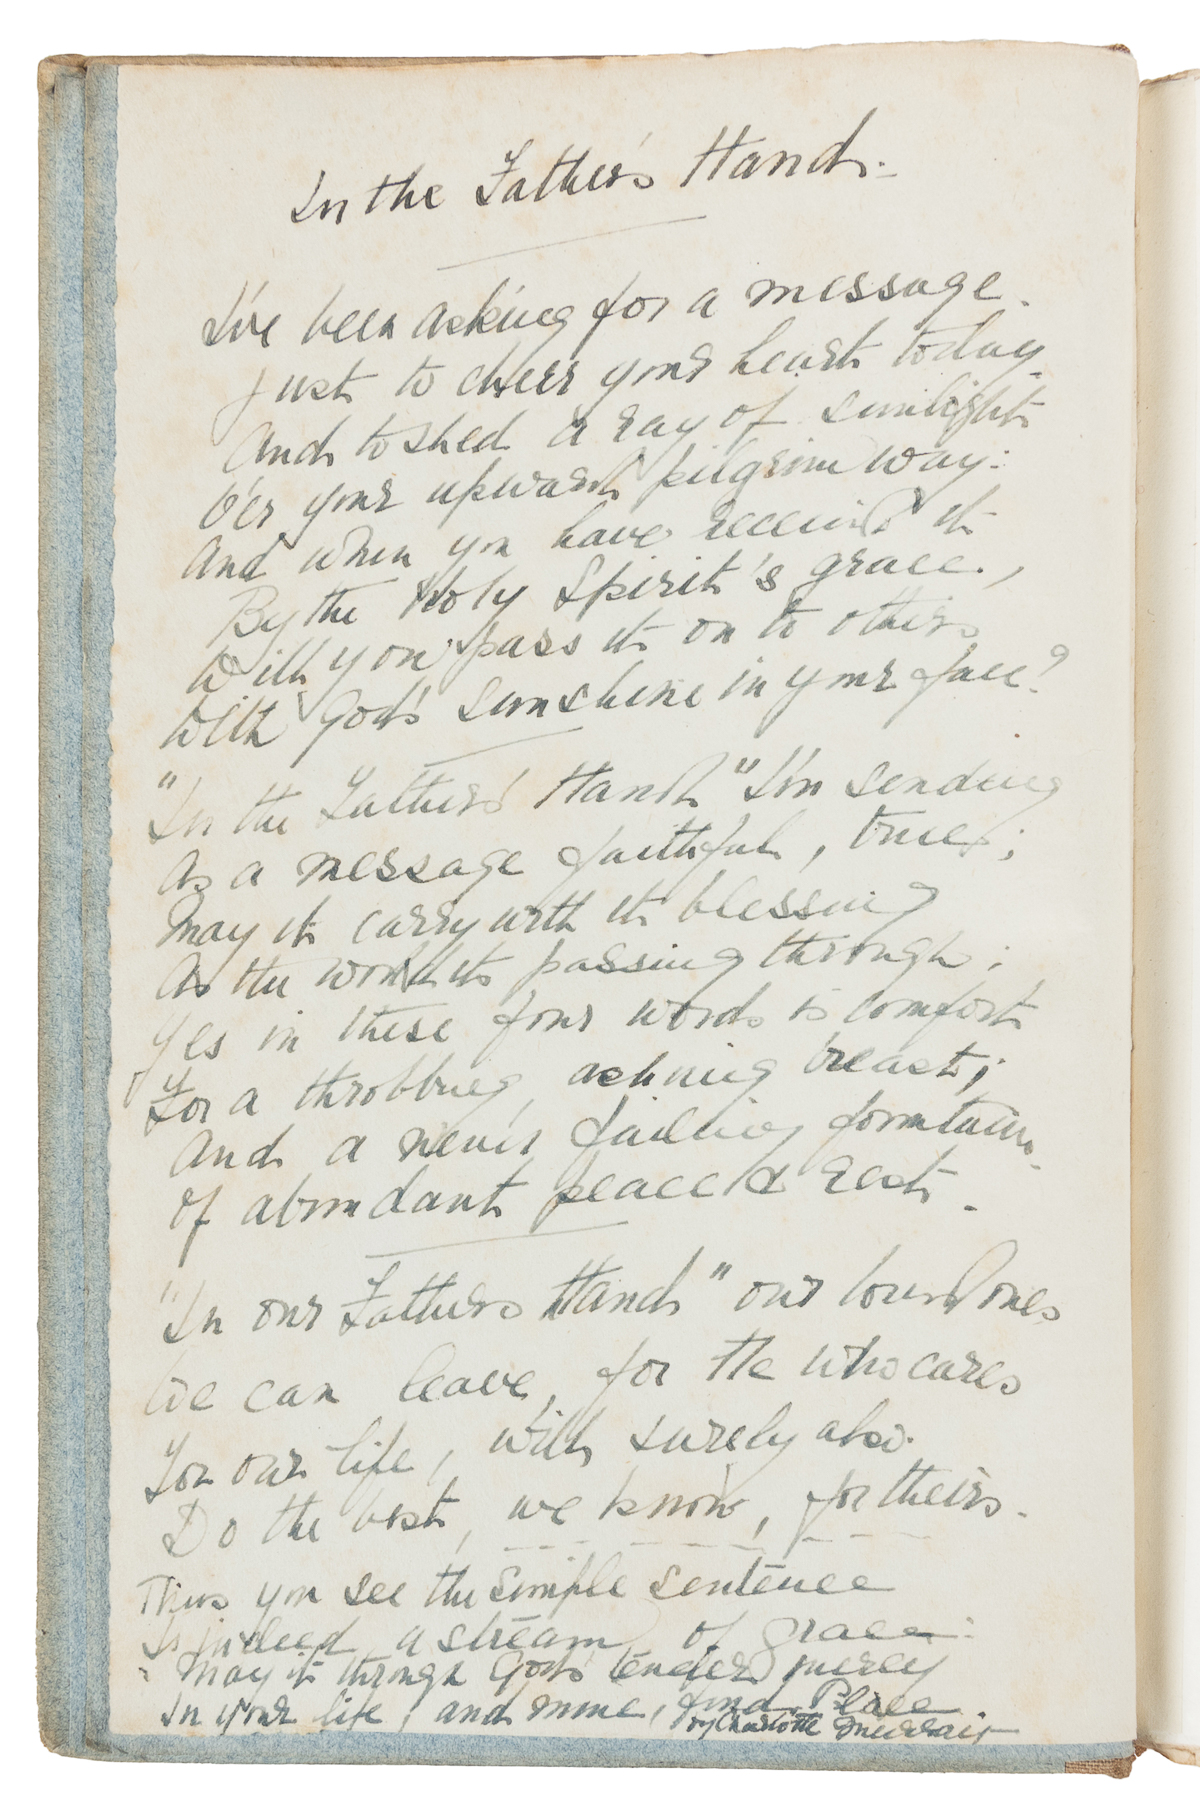 In the Father's Hand.
I've been asking for a message.
Just to cheer your heart today.
And to shed a ray of sunlight
O'er your upward pilgrim way:
And when you have receiv'd it
By the Holy Spirit's grace,
Will you pass it on to others
With God's sunshine in your face?
"In the Father's Hand" I'm sending
As a message faithful, true;
May it carry with it blessing
As the world its passing through;
Yes in these four words is comfort
For a throbbing, aching breast;
And a never failing fountain.
Of abundant peace & rest.
"In our Fathers Hand" our lov'd ones
We can leave, for He who cares
For our life, will surely also.
Do the best, we know, for theirs.
Thus you see the simple sentence
Is indeed a stream of grace:
May it through God's tender mercy
In your life, and mine, find Place
by Charlotte